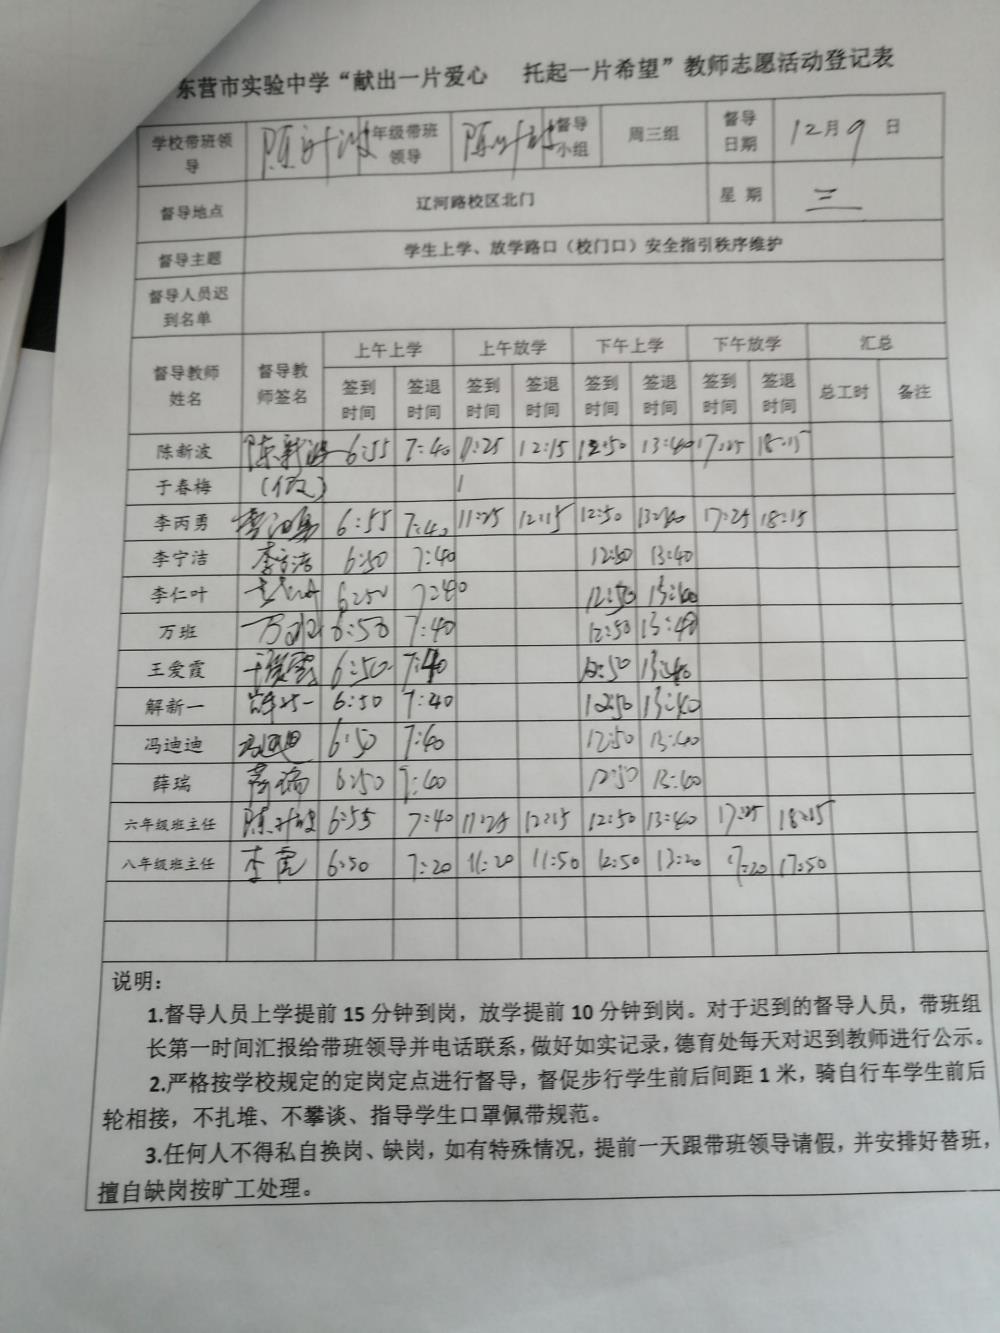 东营市实验中学“献出一片爱心 托起一片希望”教师志愿活动登记表
学校带班领导 陈新波 年级带班领导 陈新波 督导小组 周三组 督导日期 12月9日
督导地点 辽河路校区北门 星 期 三
督导主题 学生上学、放学路口（校门口）安全指引秩序维护
督导人员迟到名单
督导教师姓名 督导教师签名 上午上学 上午放学 下午上学 下午放学 汇总
签到时间 签退时间 签到时间 签退时间 签到时间 签退时间 签到时间 签退时间 总工时 备注
陈新波 陈新波 6:55 7:40 11:25 12:15 12:50 13:40 17:25 18:15
于春梅 (假)
李丙勇 6:55 7:40 11:25 12:15 12:50 13:40 17:25 18:15
李宁洁 李宁洁 6:50 7:40 12:50 13:40
李仁叶 6:50 7:40 12:50 13:40
万班 万班 6:50 7:40 12:50 13:40
王爱霞 王爱霞 6:50 7:40 12:50 13:40
解新一 解新一 6:50 7:40 12:50 13:40
冯迪迪 冯迪迪 6:50 7:40 12:50 13:40
薛瑞 薛瑞 6:50 7:40 12:50 13:40
六年级班主任 陈新波 6:55 7:40 11:25 12:15 12:50 13:40 17:25 18:15
八年级班主任 李虎 6:50 7:20 11:20 11:50 12:50 13:20 17:20 17:50
说明：
1.督导人员上学提前 15 分钟到岗，放学提前 10 分钟到岗。对于迟到的督导人员，带班组
长第一时间汇报给带班领导并电话联系，做好如实记录，德育处每天对迟到教师进行公示。
2.严格按学校规定的定岗定点进行督导，督促步行学生前后间距 1 米，骑自行车学生前后
轮相接，不扎堆、不攀谈、指导学生口罩佩带规范。
3.任何人不得私自换岗、缺岗，如有特殊情况，提前一天跟带班领导请假，并安排好替班，
擅自缺岗按旷工处理。